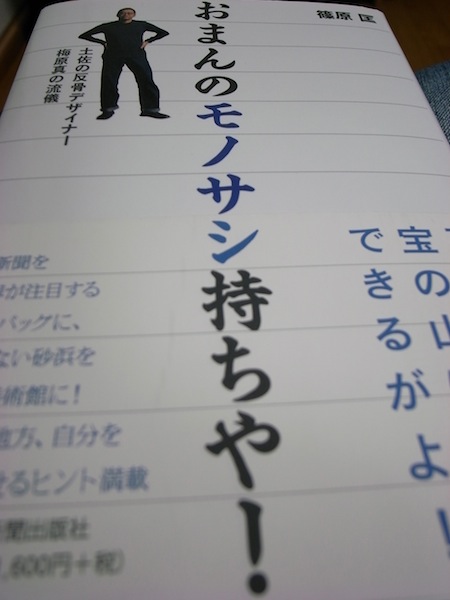 篠原 匡
おまんのモノサシ持ちや！
土佐の反骨デザイナー
梅原真の流儀
宝の山
できるがよ！
新聞を
が注目する
バッグに、
ない砂浜を
術館に！
地方、自分を
るヒント満載
聞出版社
,600円＋税）